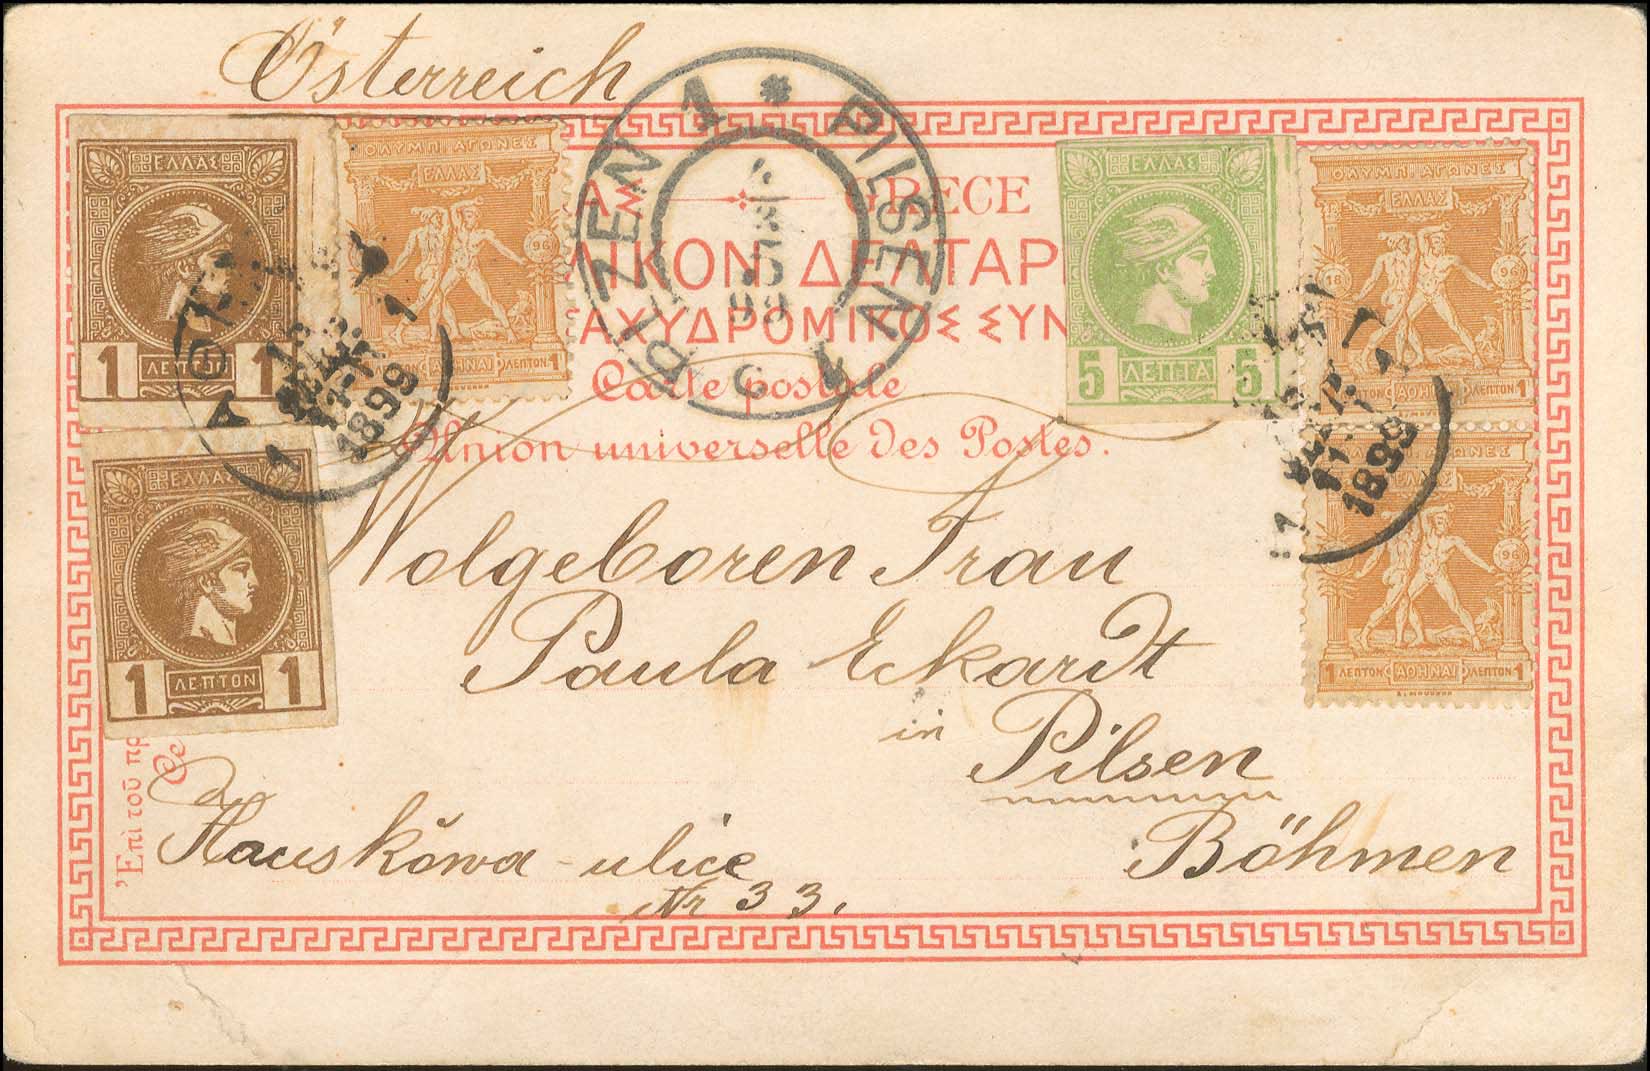 Österreich
ΕΛΛΑΣ
1 ΛΕΠΤΟΝ 1
ΟΛΥΜΠ. ΑΓΩΝΕΣ
ΕΛΛΑΣ
96
ΑΘΗΝΑΙ ΛΕΠΤΟΝ 1
1899
PLZEN 1 * PILSEN 1
99
GRÈCE
ΙΚΟΝ ΔΕΛΤΑΡ
ΑΧΥΔΡΟΜΙΚΟΣ ΣΥΝ
Carte postale
Union universelle des Postes.
ΕΛΛΑΣ
5 ΛΕΠΤΑ 5
ΟΛΥΜΠ. ΑΓΩΝΕΣ
ΕΛΛΑΣ
18 96
ΑΘΗΝΑΙ ΛΕΠΤΟΝ 1
1899
ΑΓΩΝΕΣ
ΕΛΛΑΣ
96
1 ΛΕΠΤΟΝ ΑΘΗΝΑΙ ΛΕΠΤΟΝ 1
ΕΛΛΑΣ
1 ΛΕΠΤΟΝ 1
Wolgeboren Frau
Paula Eckardt
in Pilsen
Böhmen
ulice
Nr 33.
Ἐπὶ τοῦ πρ
Ce